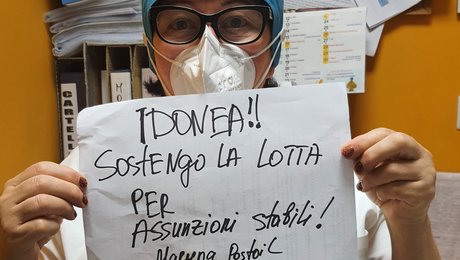 IDONEA!!
SOSTENGO LA LOTTA
PER
ASSUNZIONI Stabili!
CARTEL
MO